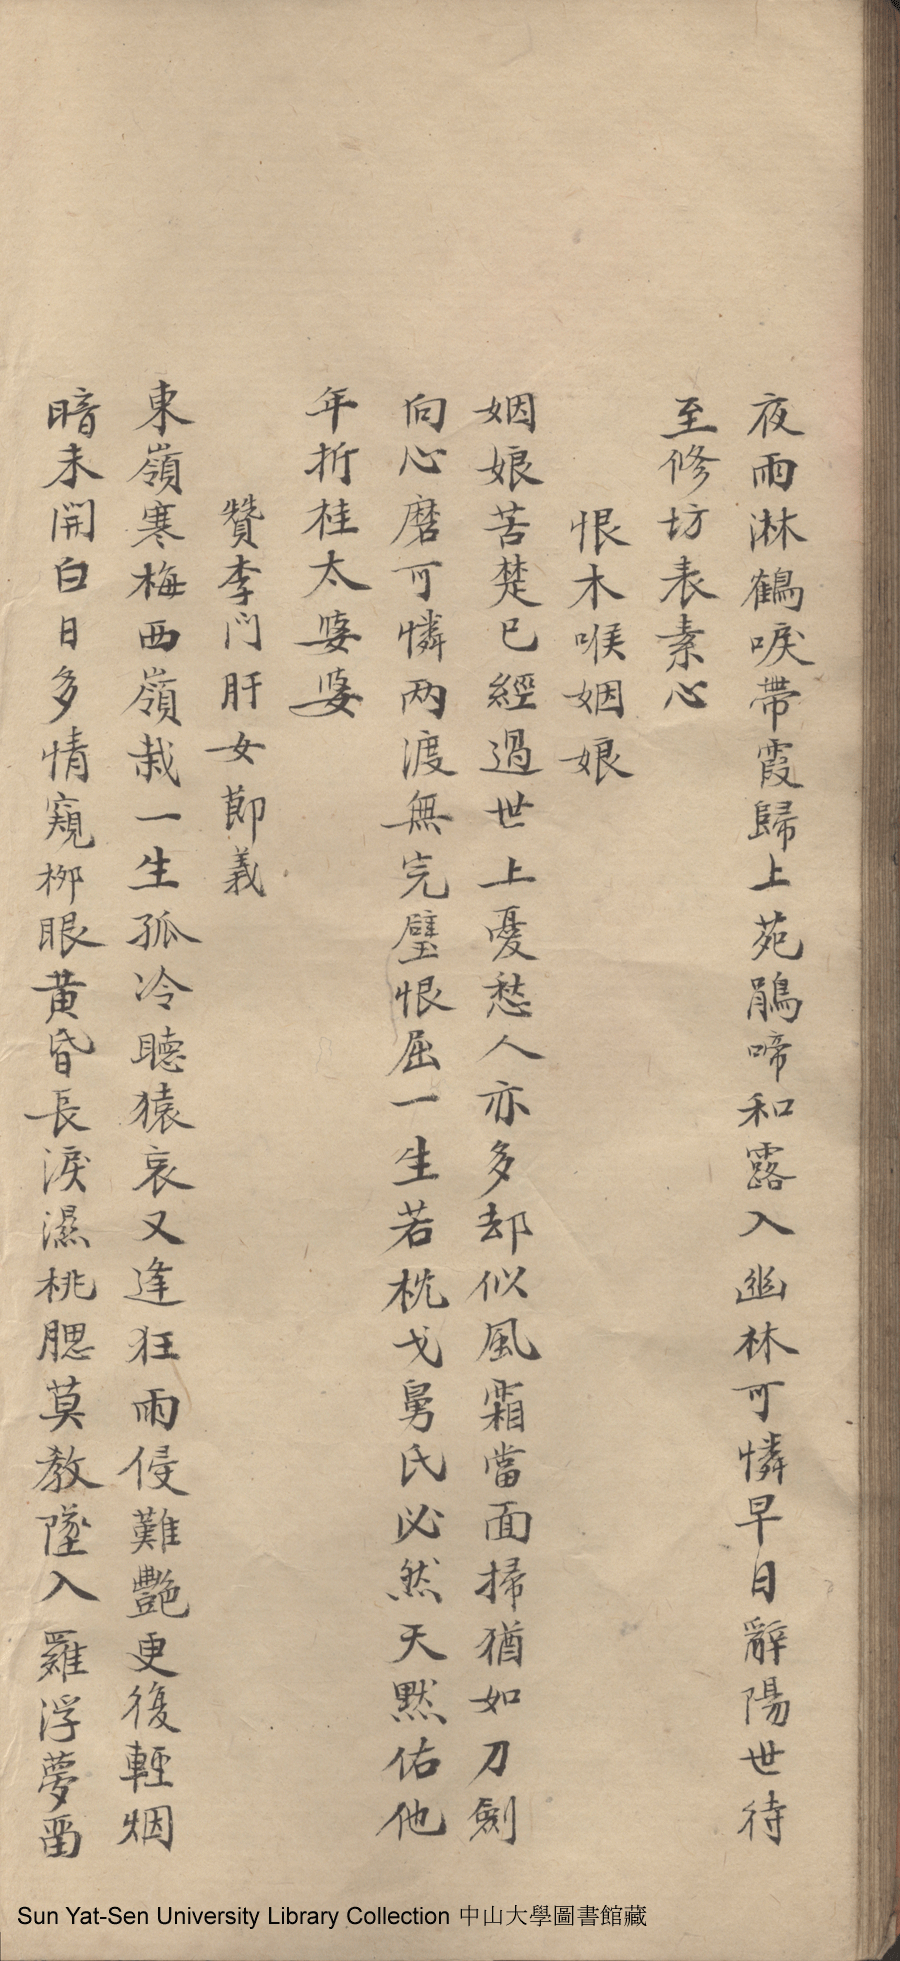 夜雨淋鶴唳帶霞歸上苑鵑啼和露入幽林可憐早日辭陽世待
至修坊表素心
恨木喉姻娘
姻娘苦楚已經過世上憂愁人亦多却似風霜當面掃猶如刀劍
向心磨可憐两渡無完璧恨屈一生若枕戈舅氏必然天默佑他
年折桂太婆婆
贊李门肝女節義
東嶺寒梅西嶺栽一生孤冷聽猿哀又逢狂雨侵難艷更復輕烟
暗未開白日多情窺柳眼黄昏長淚濕桃腮莫教墜入羅浮夢畱
Sun Yat-Sen University Library Collection 中山大學圖書館藏